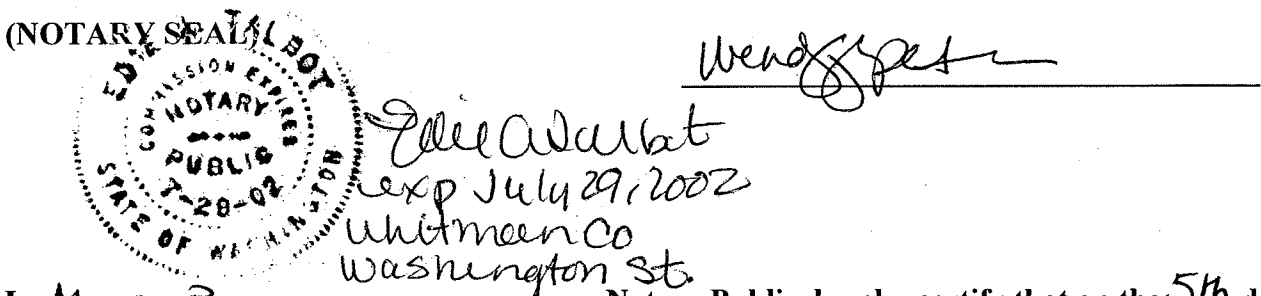 (NOTARY SEAL)
TALBOT
COMMISSION EXPIRES
NOTARY
PUBLIC
STATE OF WASHINGTON
Edie A Talbot
exp July 29, 2002
Whitman Co
Washington St.
Notary Public, hereby certify that on the 5th d